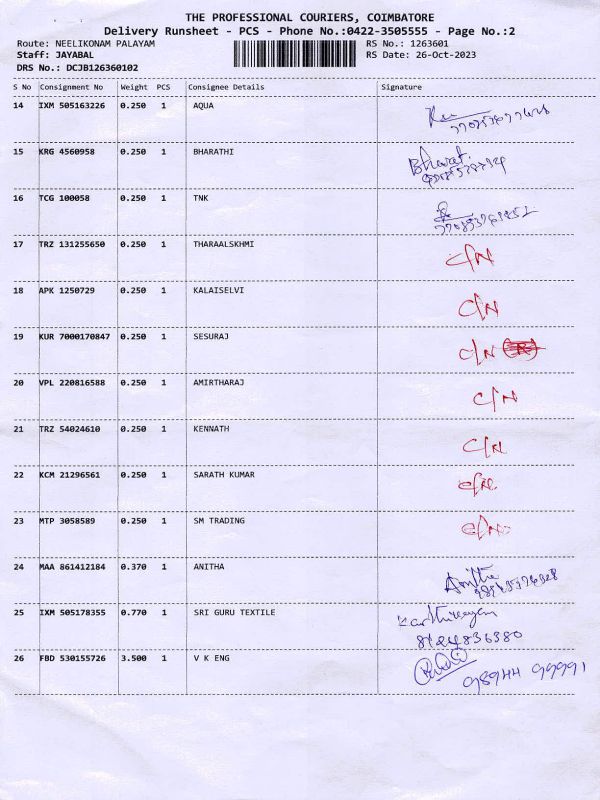 THE PROFESSIONAL COURIERS, COIMBATORE
Delivery Runsheet - PCS - Phone No.:0422-3505555 - Page No.:2
Route: NEELIKONAM PALAYAM RS No.: 1263601
Staff: JAYABAL RS Date: 26-Oct-2023
DRS No.: DCJB126360102
S No Consignment No Weight PCS Consignee Details Signature
14 IXM 505163226 0.250 1 AQUA
15 KRG 4560958 0.250 1 BHARATHI Bharat.
16 TCG 100058 0.250 1 TNK
17 TRZ 131255650 0.250 1 THARAALSKHMI C/N
18 APK 1250729 0.250 1 KALAISELVI C/N
19 KUR 7000170847 0.250 1 SESURAJ C/N
20 VPL 220816588 0.250 1 AMIRTHARAJ C/N
21 TRZ 54024610 0.250 1 KENNATH C/N
22 KCM 21296561 0.250 1 SARATH KUMAR
23 MTP 3058589 0.250 1 SM TRADING
24 MAA 861412184 0.370 1 ANITHA Anitha
25 IXM 505178355 0.770 1 SRI GURU TEXTILE Karthikeyan
26 FBD 530155726 3.500 1 V K ENG
98944 99991